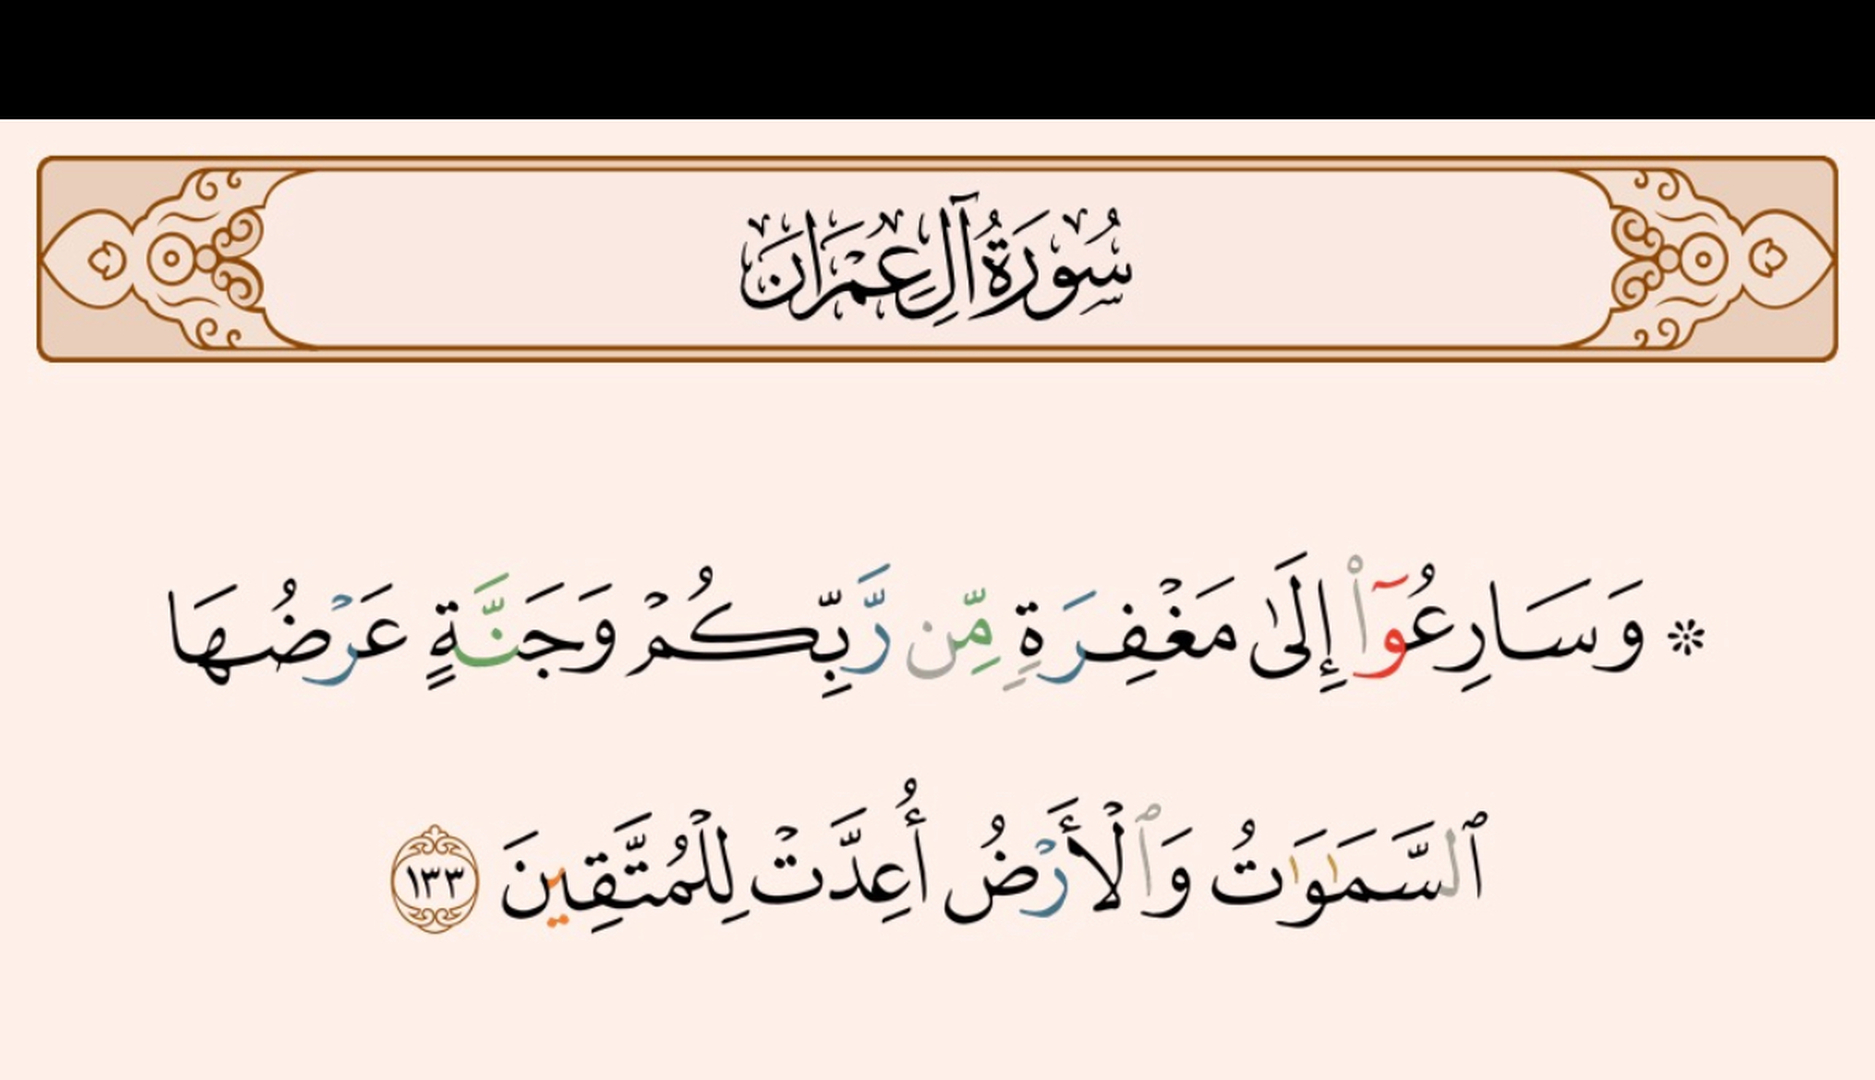 سُورَةُ آلِ عِمْرَانَ
۞ وَسَارِعُوٓا۟ إِلَىٰ مَغْفِرَةٍۢ مِّن رَّبِّكُمْ وَجَنَّةٍ عَرْضُهَا
ٱلسَّمَـٰوَٰتُ وَٱلْأَرْضُ أُعِدَّتْ لِلْمُتَّقِينَ ١٣٣